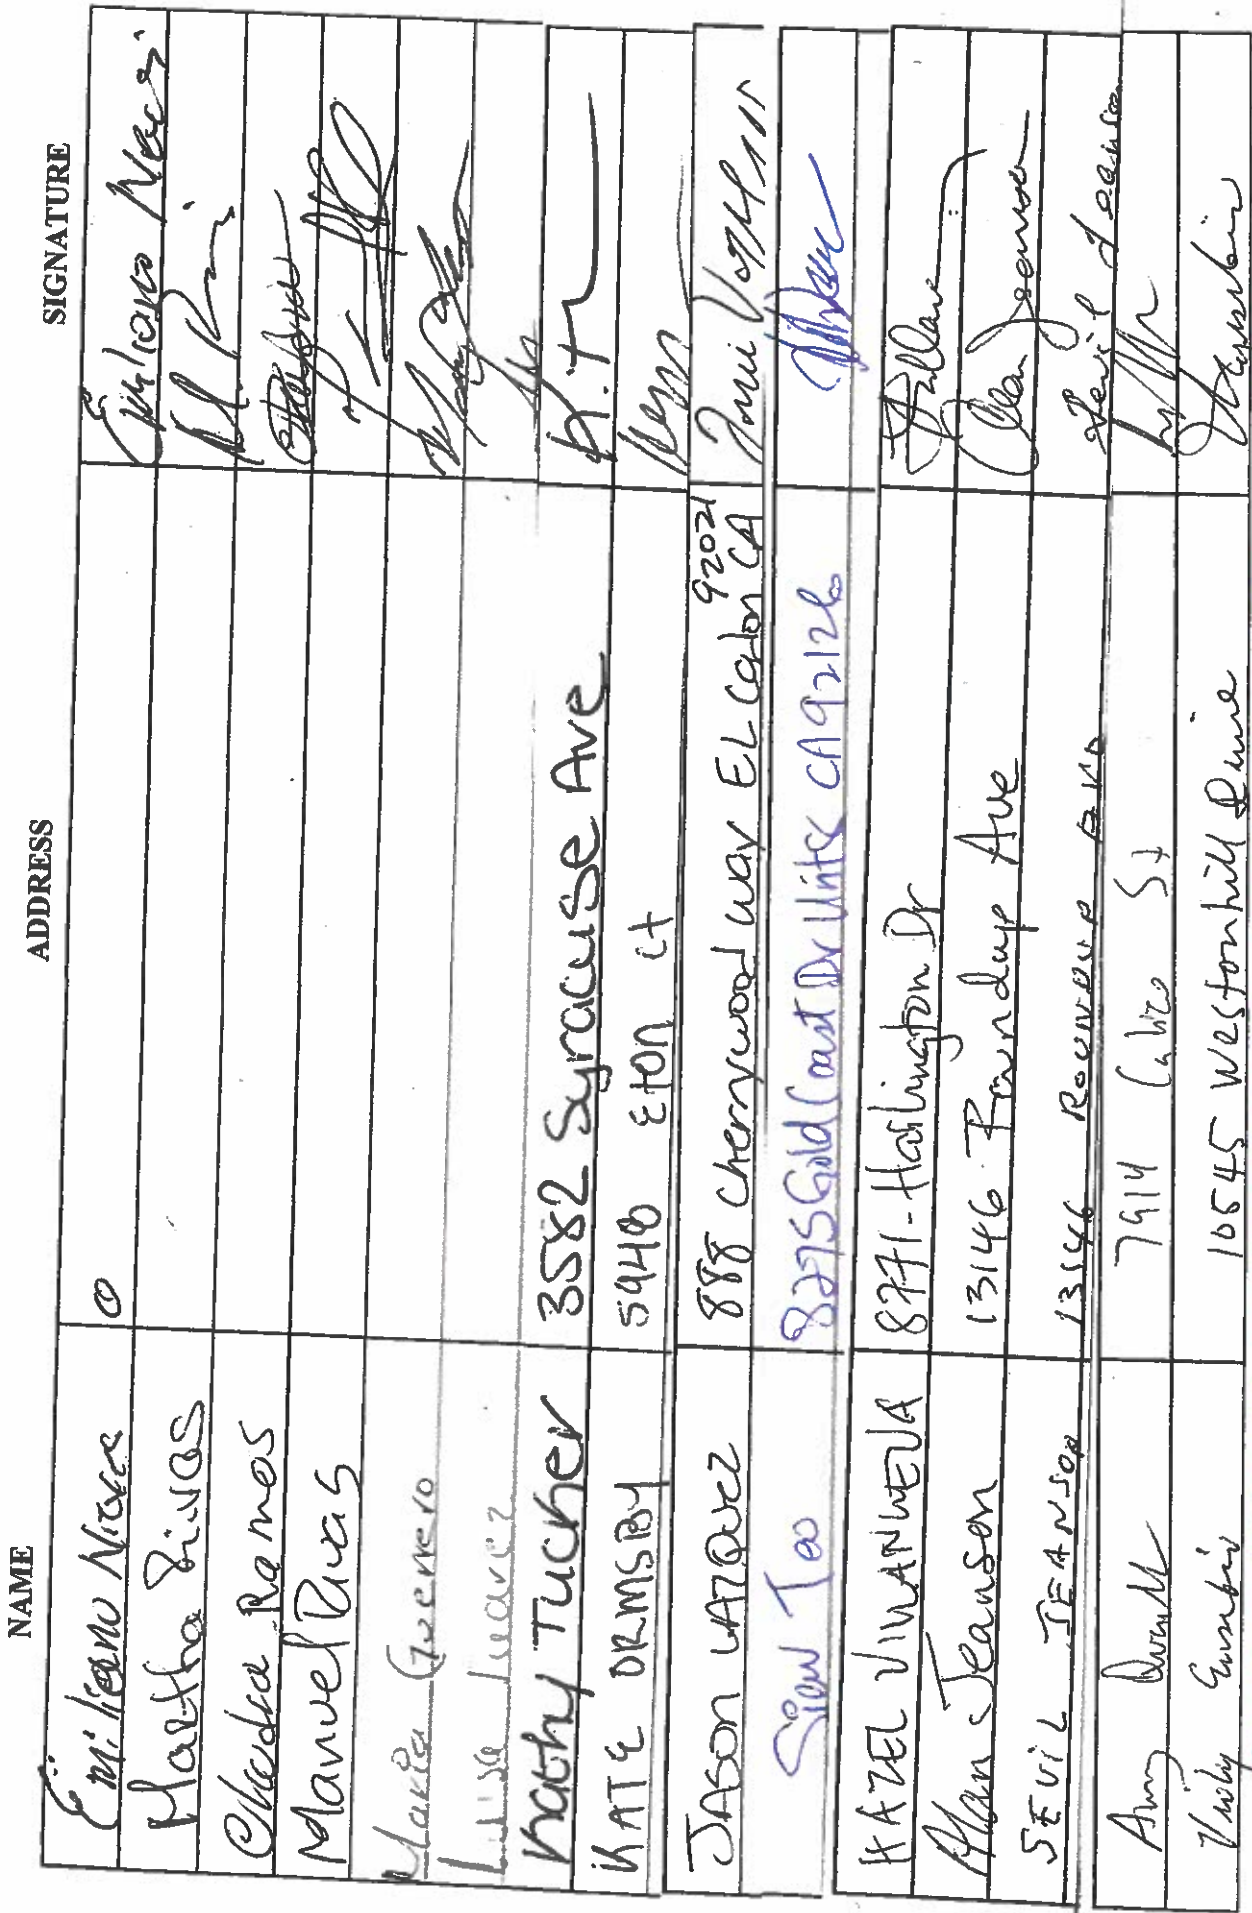 NAME ADDRESS SIGNATURE
Emiliano Nieves 0 Emiliano
Martha Rivas
Ramos
Manuel Rivas
Maria Guerrero
Luisa Juarez
Kathy Tucker 3582 Syracuse Ave K.T
KATE ORMSBY 5948 Eton ct
JASON VAZQUEZ 888 Cherrywood way EL Cajon CA 92021
Siew Teo 8275 Gold Coast Dr Unit CA 92126
HAZEL VILLANUEVA 8771-Harlington Dr
Alan Jeanson 13146 Roundup Ave Alan Jeanson
SEVIL JEANSON 13146 ROUNDUP AVE Sevil Jeanson
Amy 7914 Calico St
Vicky Eusebio 10545 Westonhill Drive